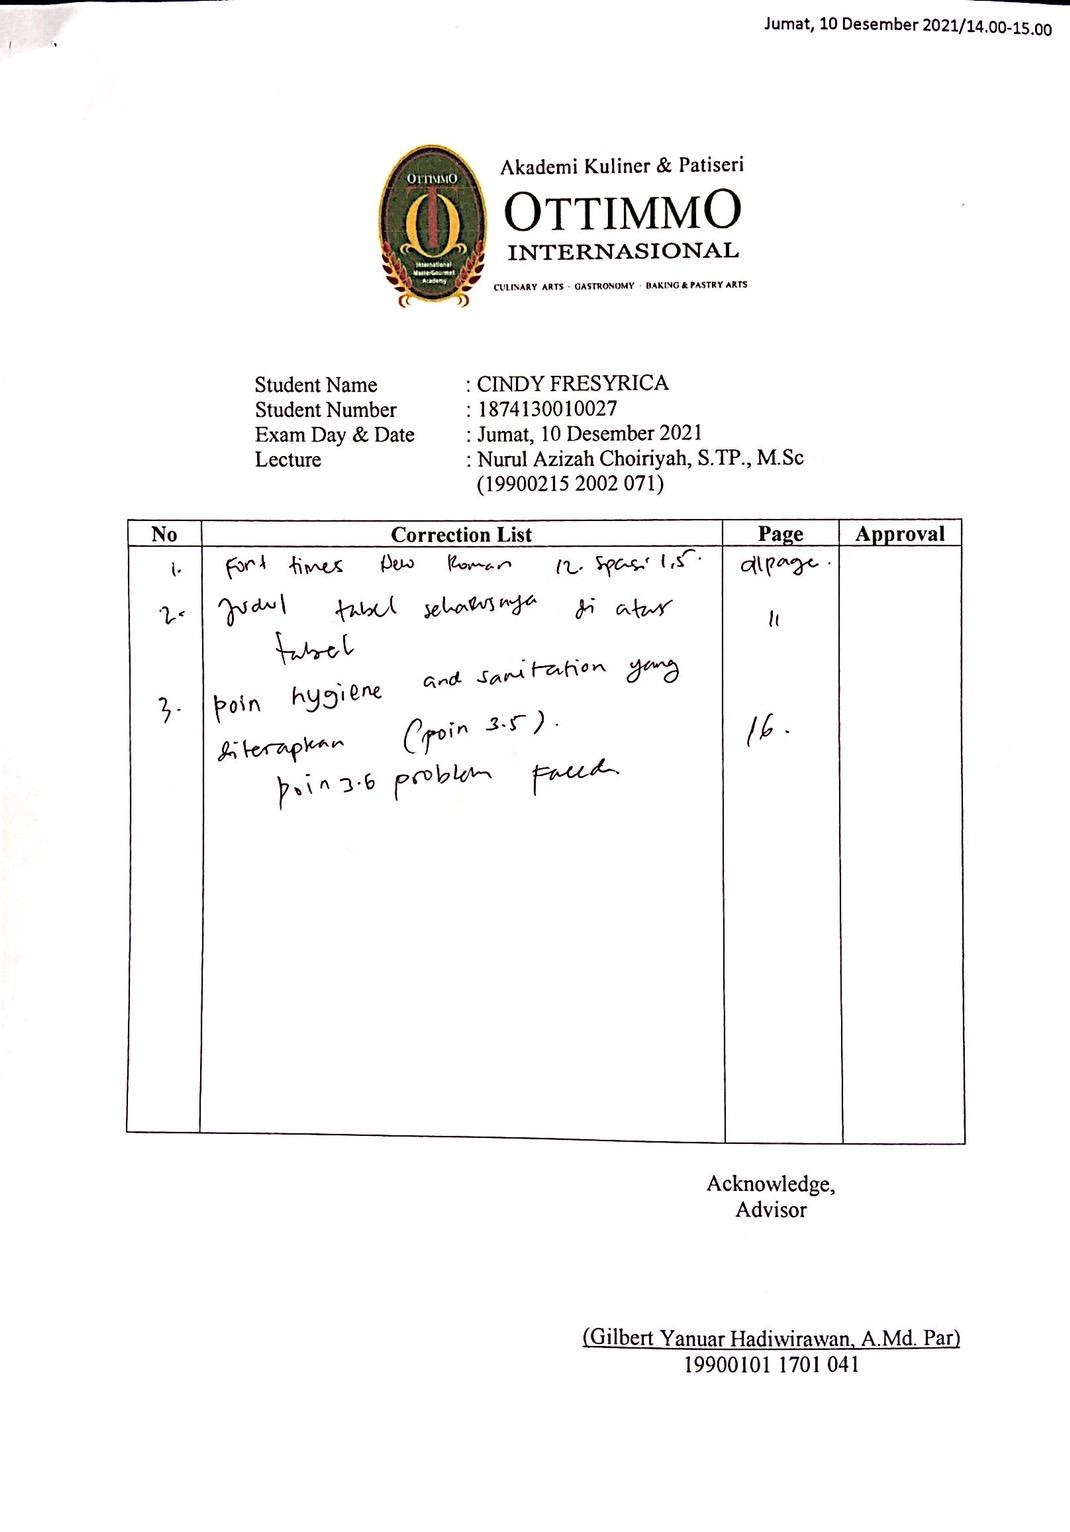 Jumat, 10 Desember 2021/14.00-15.00
OTTIMMO
International
MasterGourmet
Academy
Akademi Kuliner & Patiseri
OTTIMMO
INTERNASIONAL
CULINARY ARTS · GASTRONOMY · BAKING & PASTRY ARTS
Student Name : CINDY FRESYRICA
Student Number : 1874130010027
Exam Day & Date : Jumat, 10 Desember 2021
Lecture : Nurul Azizah Choiriyah, S.TP., M.Sc
(19900215 2002 071)
No Correction List Page Approval
1. Font times New Roman 12. Spasi 1,5. all page.
2. Judul tabel seharusnya di atas 11
tabel
3. poin hygiene and sanitation yang
diterapkan (poin 3.5). 16.
poin 3.6 problem faced
Acknowledge,
Advisor
(Gilbert Yanuar Hadiwirawan, A.Md. Par)
19900101 1701 041